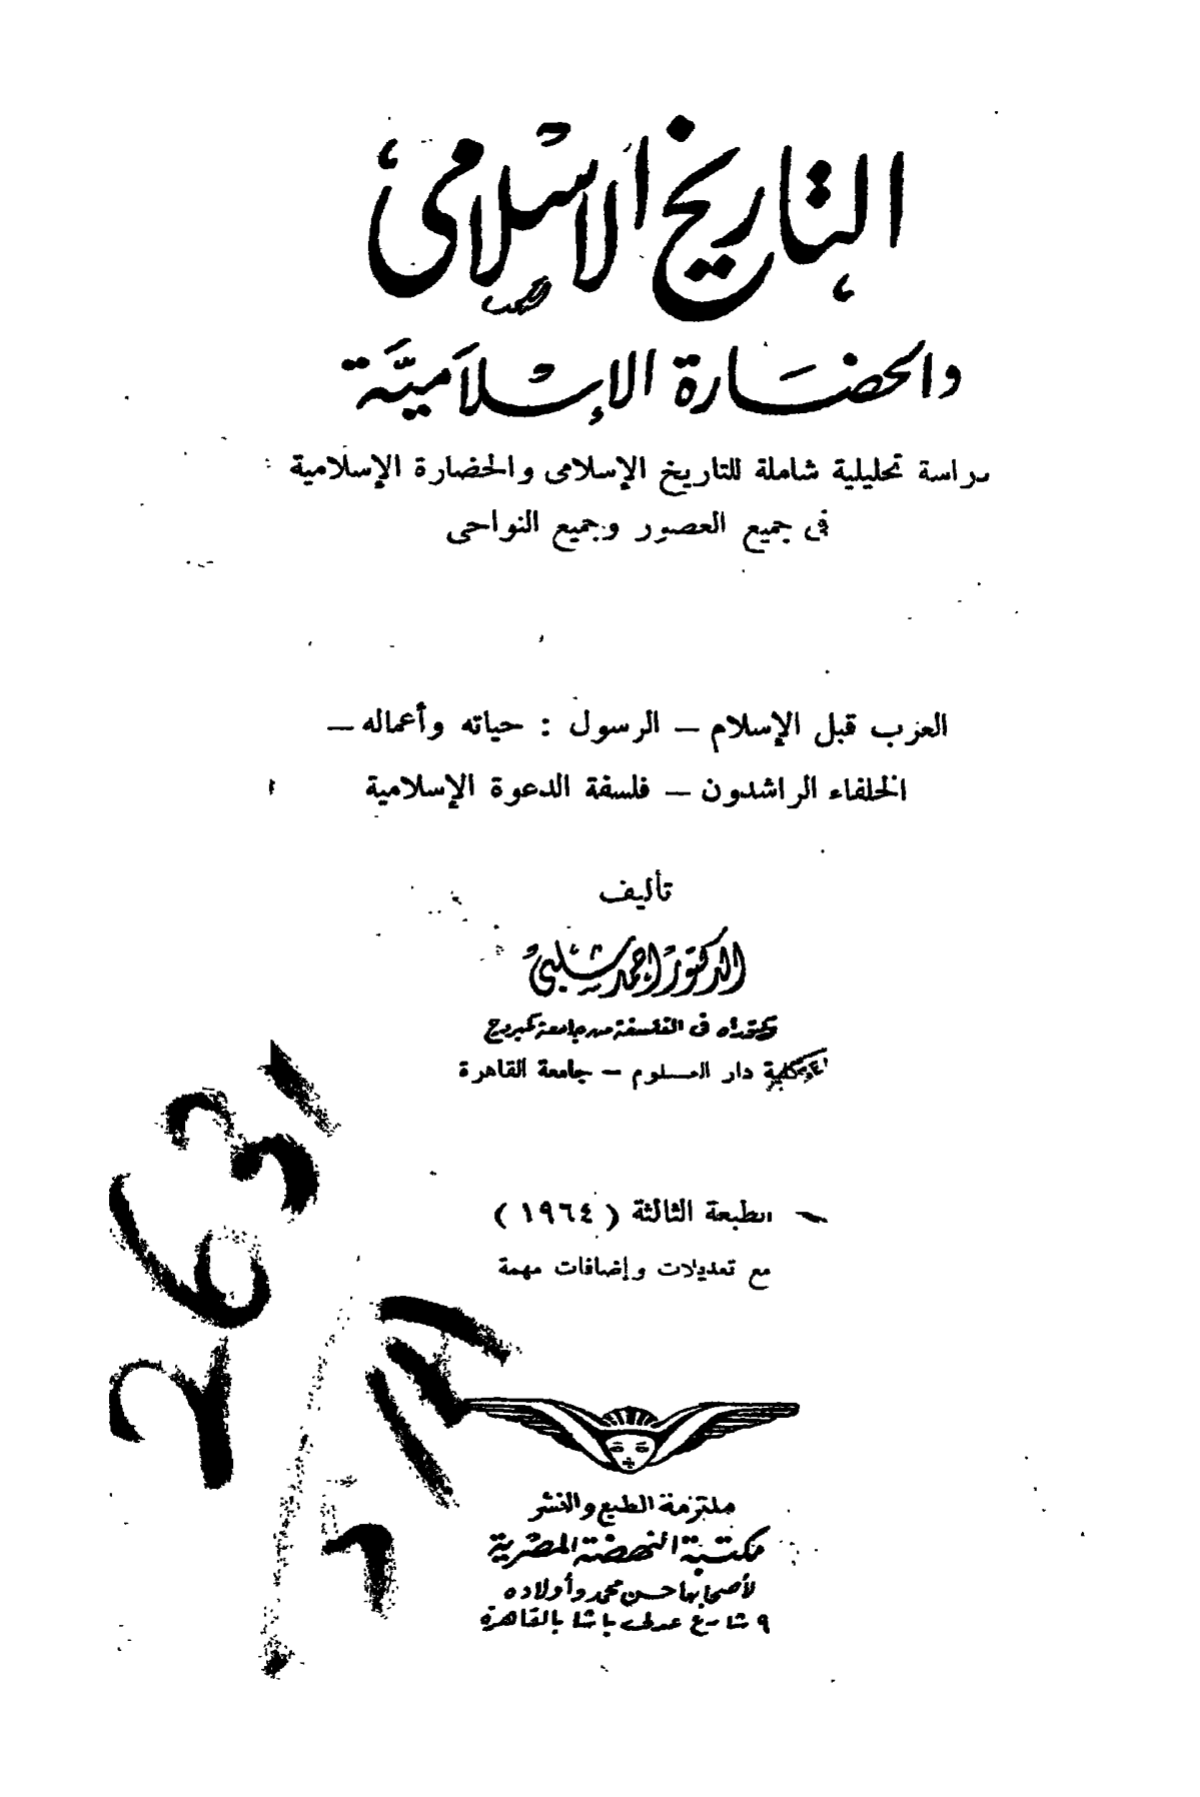 التاريخ الإسلامى
والحضارة الإسلامية
دراسة تحليلية شاملة للتاريخ الإسلامى والحضارة الإسلامية
فى جميع العصور وجميع النواحى
العرب قبل الإسلام – الرسول : حياته وأعماله –
الخلفاء الراشدون – فلسفة الدعوة الإسلامية
تأليف
الدكتور أحمد شلبى
دكتوراه فى الفلسفة من جامعة كمبردج
بكلية دار العلوم – جامعة القاهرة
الطبعة الثالثة ( ١٩٦٤ )
مع تعديلات وإضافات مهمة
ملتزمة الطبع والنشر
مكتبة النهضة المصرية
لأصحابها حسن محمد وأولاده
٩ شارع عدلى باشا بالقاهرة